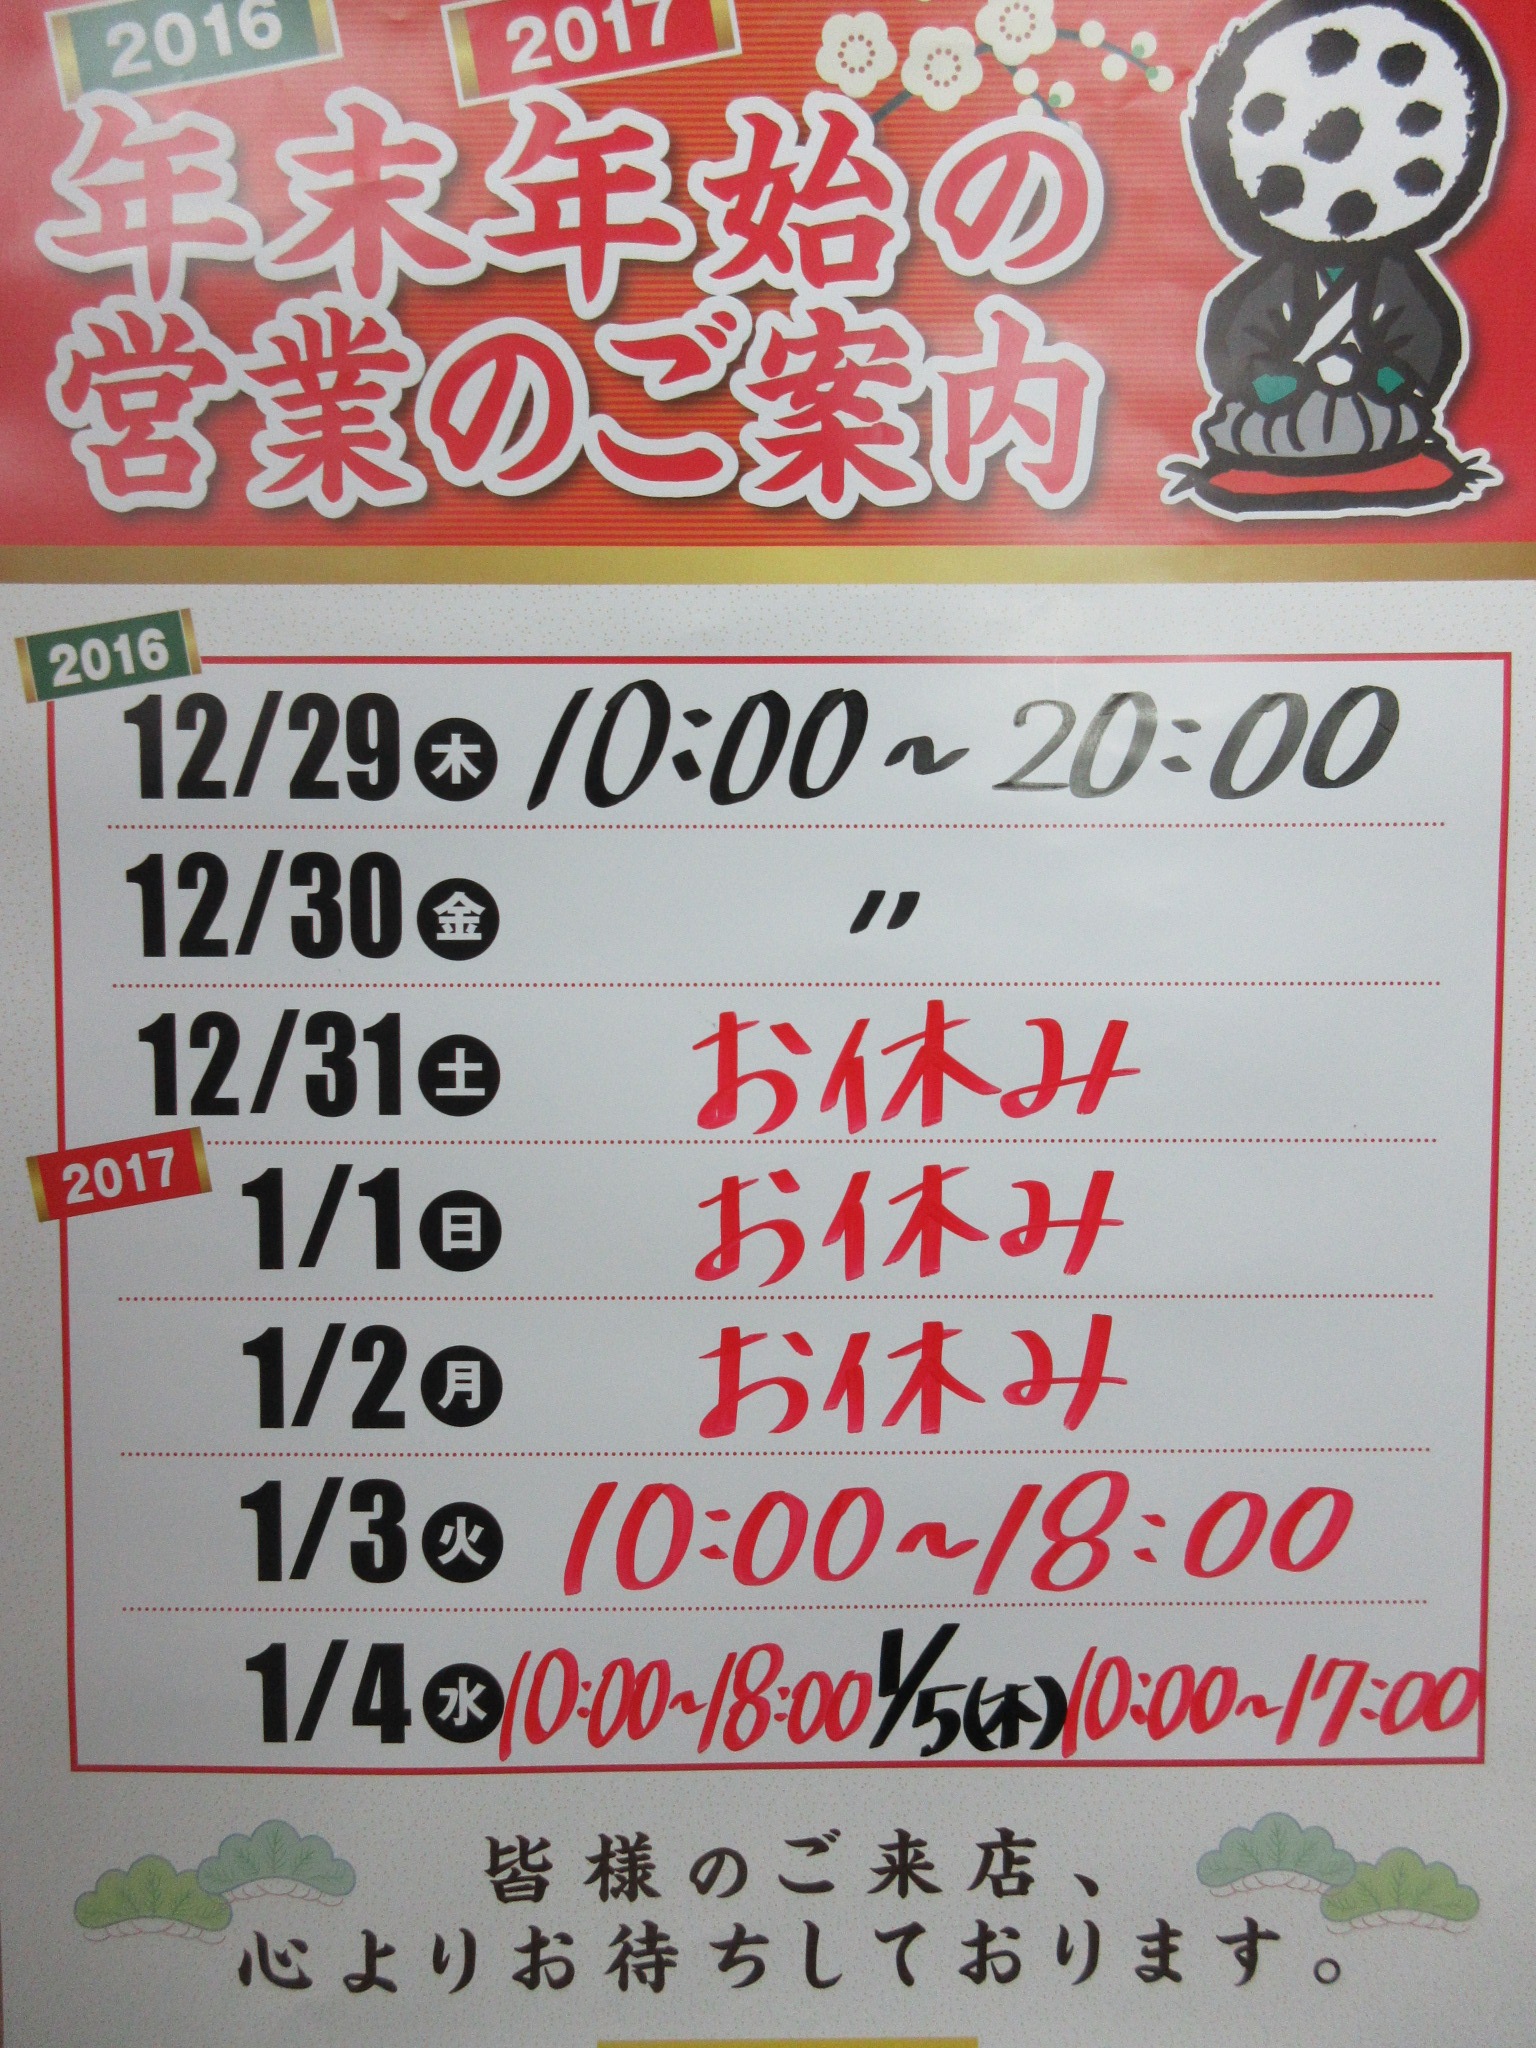 2016 2017
年末年始の
営業のご案内
2016
12/29 木 10:00～20:00
12/30 金 〃
12/31 土 お休み
2017
1/1 日 お休み
1/2 月 お休み
1/3 火 10:00～18:00
1/4 水 10:00～18:00 1/5(木) 10:00～17:00
皆様のご来店、
心よりお待ちしております。